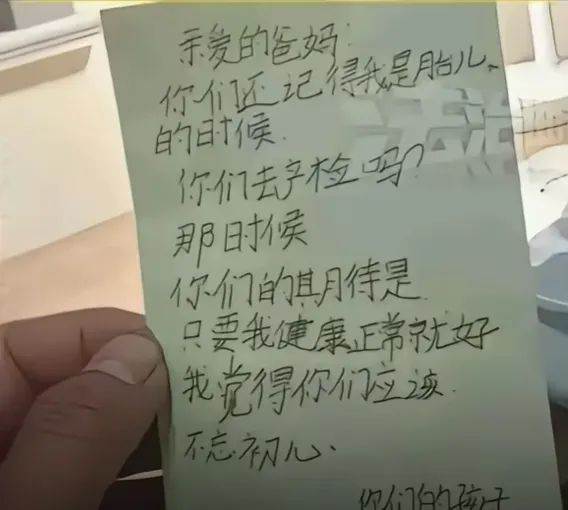 亲爱的爸妈:
你们还记得我是胎儿、
的时候.
你们去产检吗?
那时候
你们的期待是
只要我健康正常就好
我觉得你们应该.
不忘初心.
你们的孩子
法治